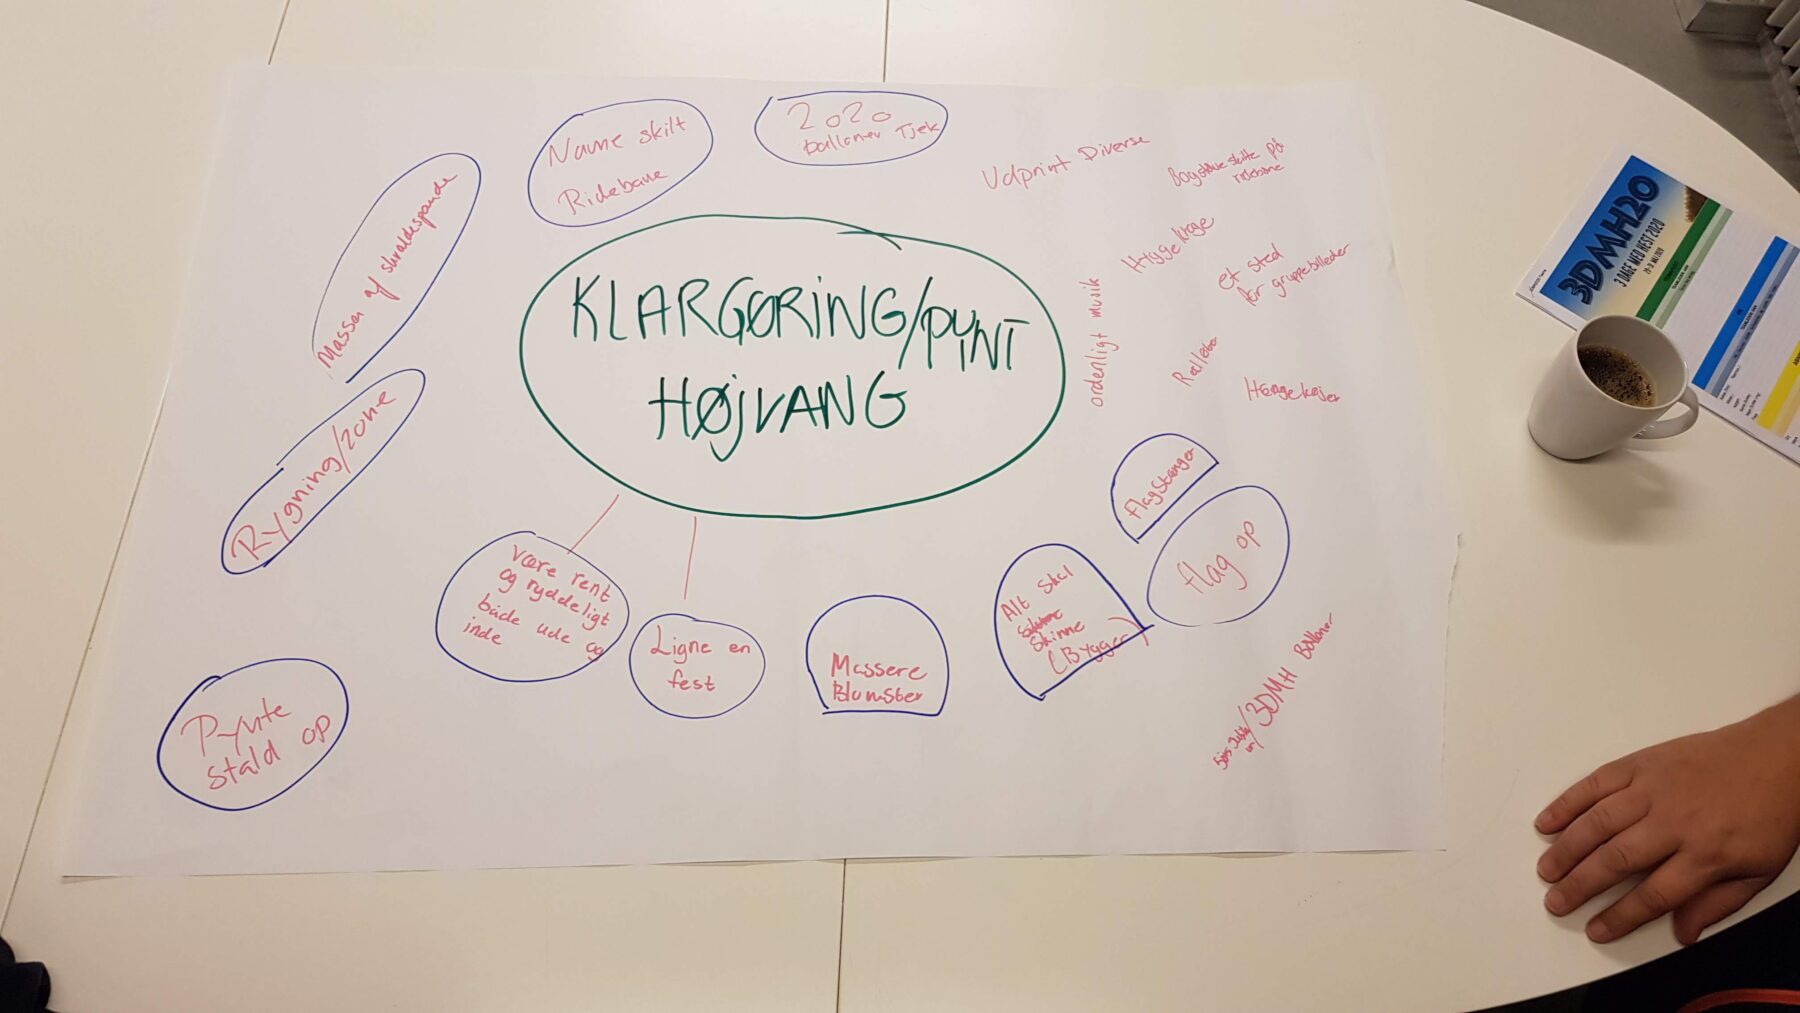 KLARGØRING/PYNT
HØJVANG
Name skilt
Ridebane
2020
balloner Tjek
Massen af skraldespande
Rygning/zone
Pynte
stald op
være rent
og ryddeligt
både ude og
inde
Ligne en
fest
Massere
Blomster
Alt skal
skinne
(Bygger)
Flagstænger
flag op
Udprint Diverse
Bogstave skilte på
ridebane
Hygge krоge
et sted
for gruppebilleder
ordenligt musik
Hængekøjer
3DMH Balloner
3DMH20
3 DAGE MED HEST 2020